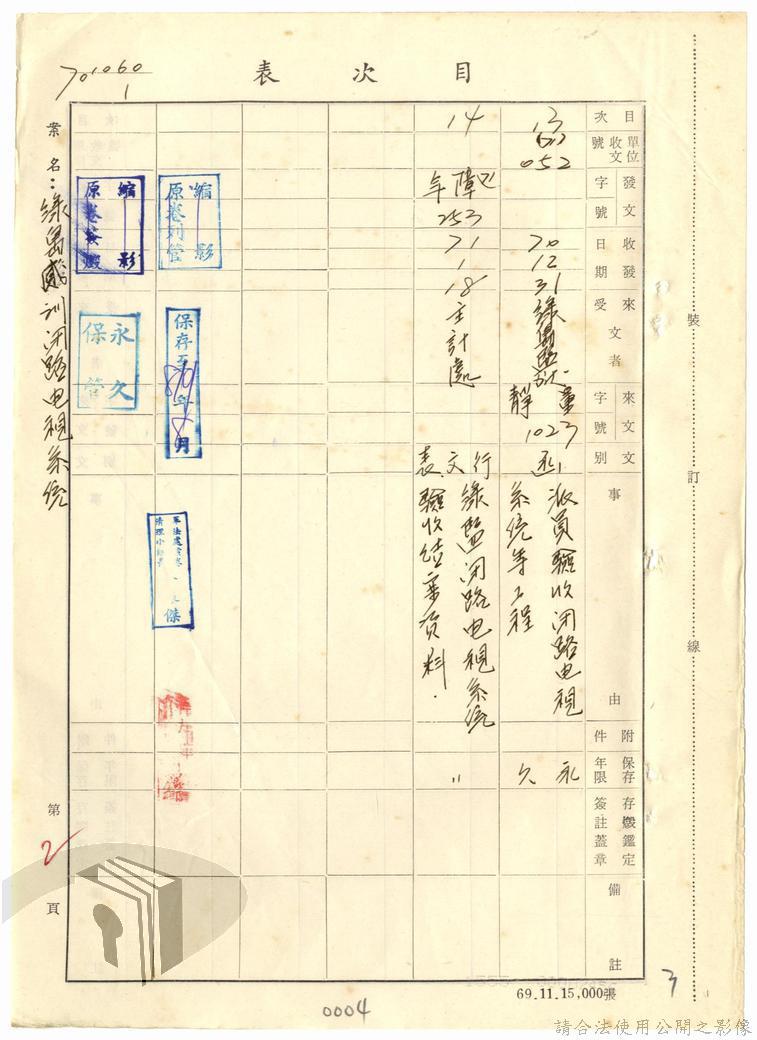 目次表
701060
1
案名：綠島感訓閉路电視系統
目次
單位收文號
發文字號
收發日期
來文受者
來文字號
文別
事由
附件
保存年限
存毀鑑定簽註蓋章
備註
13
052
70
12
31
綠島
1023
函
派員驗收閉路电視
系統等工程
永久
14
253
71
1
18
主計處
行文表
綠監閉路电視系統
驗收結案資料.
〃
縮影
原卷列管
保存至
年
月
縮影
原卷
永久
保管
傑
裝
訂
線
第
2
頁
69.11.15,000張
3
0004
請合法使用公開之影像